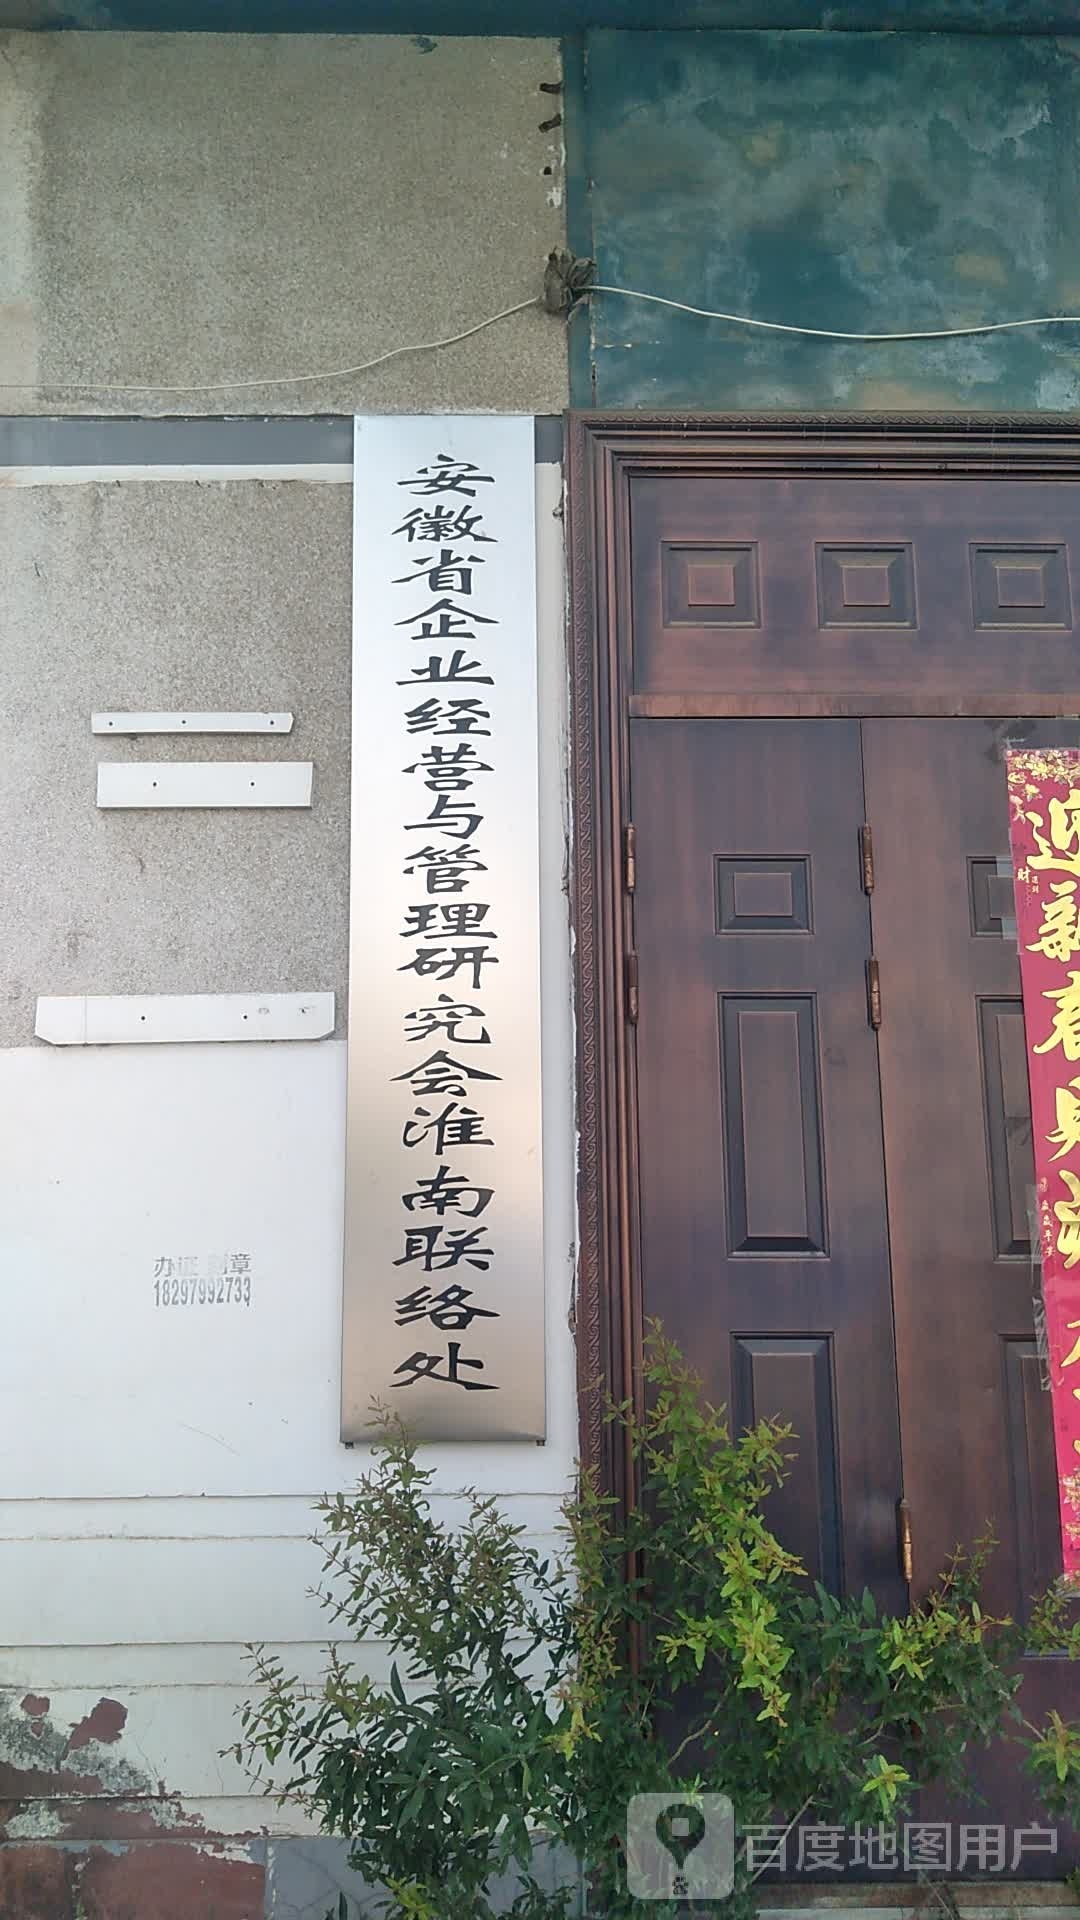 安徽省企业经营与管理研究会淮南联络处
办证 刻章
18297992733
迎新春
财
岁岁平安
百度地图用户